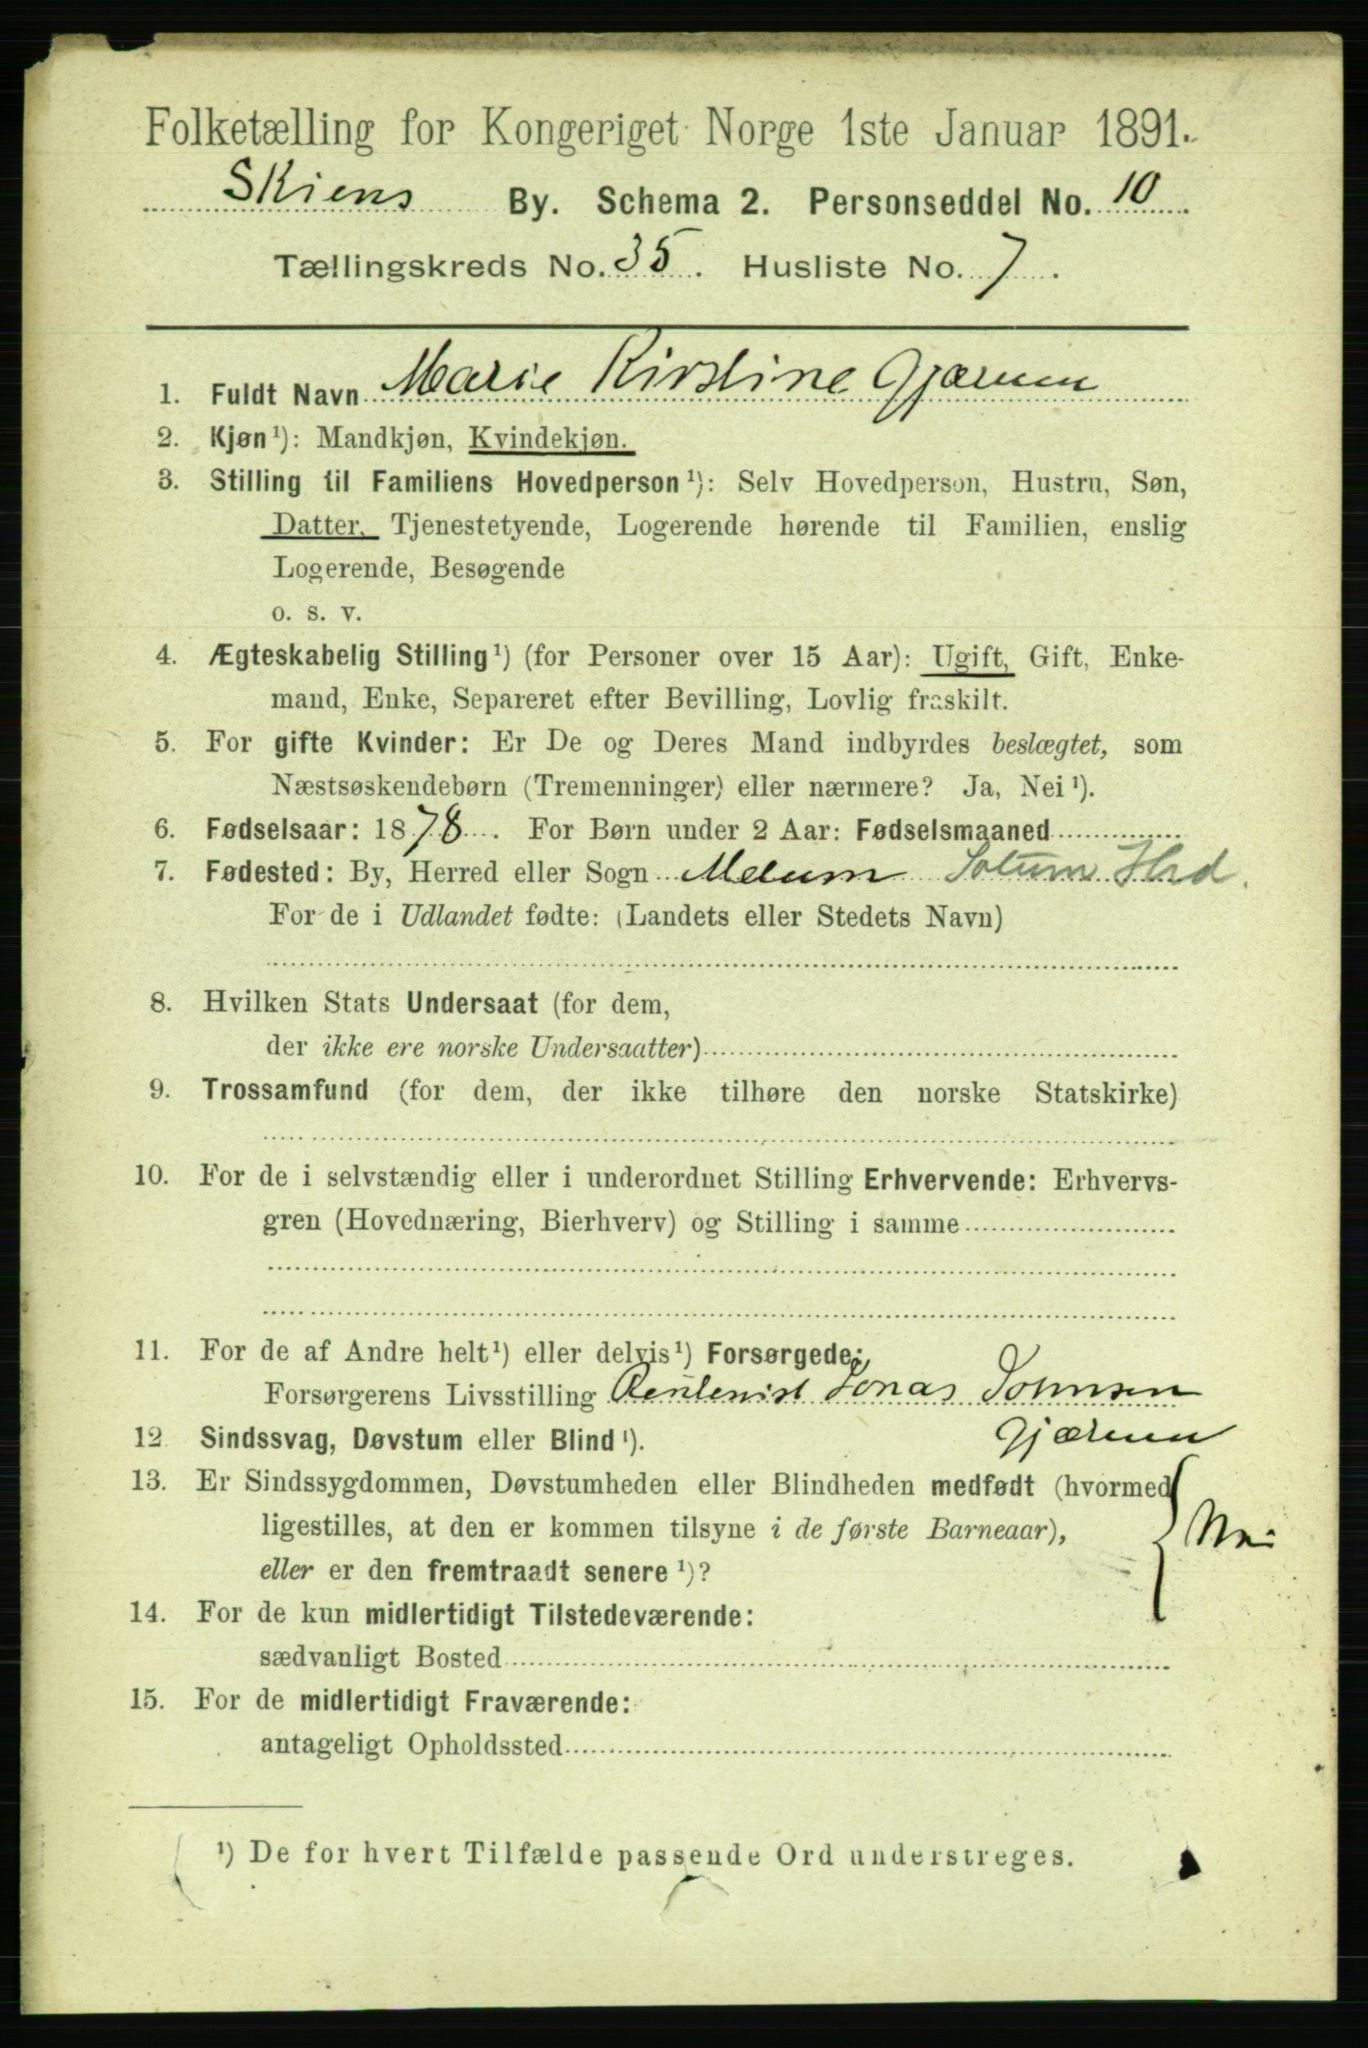 Folketælling for Kongeriget Norge 1ste Januar 1891.
Skiens By. Schema 2. Personseddel No. 10
Tællingskreds No. 35. Husliste No. 7.
1. Fuldt Navn Marie Kirstine Gjærum
2. Kjøn¹): Mandkjøn, Kvindekjøn.
3. Stilling til Familiens Hovedperson¹): Selv Hovedperson, Hustru, Søn,
Datter, Tjenestetyende, Logerende hørende til Familien, enslig
Logerende, Besøgende
o. s. v.
4. Ægteskabelig Stilling¹) (for Personer over 15 Aar): Ugift, Gift, Enke-
mand, Enke, Separeret efter Bevilling, Lovlig fraskilt.
5. For gifte Kvinder: Er De og Deres Mand indbyrdes beslægtet, som
Næstsøskendebørn (Tremenninger) eller nærmere? Ja, Nei¹).
6. Fødselsaar: 1878. For Børn under 2 Aar: Fødselsmaaned
7. Fødested: By, Herred eller Sogn Melum Solum Hrd.
For de i Udlandet fødte: (Landets eller Stedets Navn)
8. Hvilken Stats Undersaat (for dem,
der ikke ere norske Undersaatter)
9. Trossamfund (for dem, der ikke tilhøre den norske Statskirke)
10. For de i selvstændig eller i underordnet Stilling Erhvervende: Erhvervs-
gren (Hovednæring, Bierhverv) og Stilling i samme
11. For de af Andre helt¹) eller delvis¹) Forsørgede:
Forsørgerens Livsstilling Jonas Johnsen
Gjærum
12 Sindssvag, Døvstum eller Blind¹).
13. Er Sindssygdommen, Døvstumheden eller Blindheden medfødt (hvormed
ligestilles, at den er kommen tilsyne i de første Barneaar), Nei
eller er den fremtraadt senere¹)?
14. For de kun midlertidigt Tilstedeværende:
sædvanligt Bosted
15. For de midlertidigt Fraværende:
antageligt Opholdssted
¹) De for hvert Tilfælde passende Ord understreges.